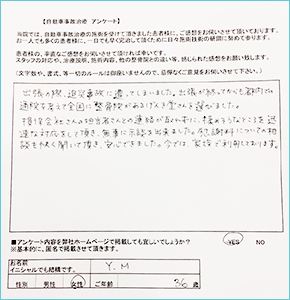 【自動車事故治療 アンケート】
当院では、自動車事故治療の施術を受けて頂きました患者様に、ご感想をお伺いさせて頂いております。
お一人でも多くの患者様に、一日でも早く完治して頂くために日々施術技術の研鑽に努めて参ります。
患者様の、率直なご感想をお伺いさせて頂ければ幸いです。
スタッフの対応や、治療説明、施術内容、他の整骨院との違い等、感じられた感想をお願い致します。
(文字数や、書式、等一切のルールは御座いませんので、忌憚なくご意見をお伺いさせて下さい)
出張の際、追突事故に遭ってしまいました。出張が終ってからも都内での
通院を考えて全国に整骨院があるげんき堂さんを選びました。
損保会社さんの担当者さんとの連絡が取れずに、揉めそうなところを迅
速な対応をして頂き、無事に示談を出来ました。慰謝料についての相
談もやさしく聞いて頂き、安心できました。今では、家族で利用しております。
■アンケート内容を弊社ホームページで掲載しても宜しいでしょうか? YES NO
※基本的に、匿名で掲載させて頂きます。
お名前 Y.M
イニシャルでも結構です。
性別 男性 女性 ご年齢 36 歳